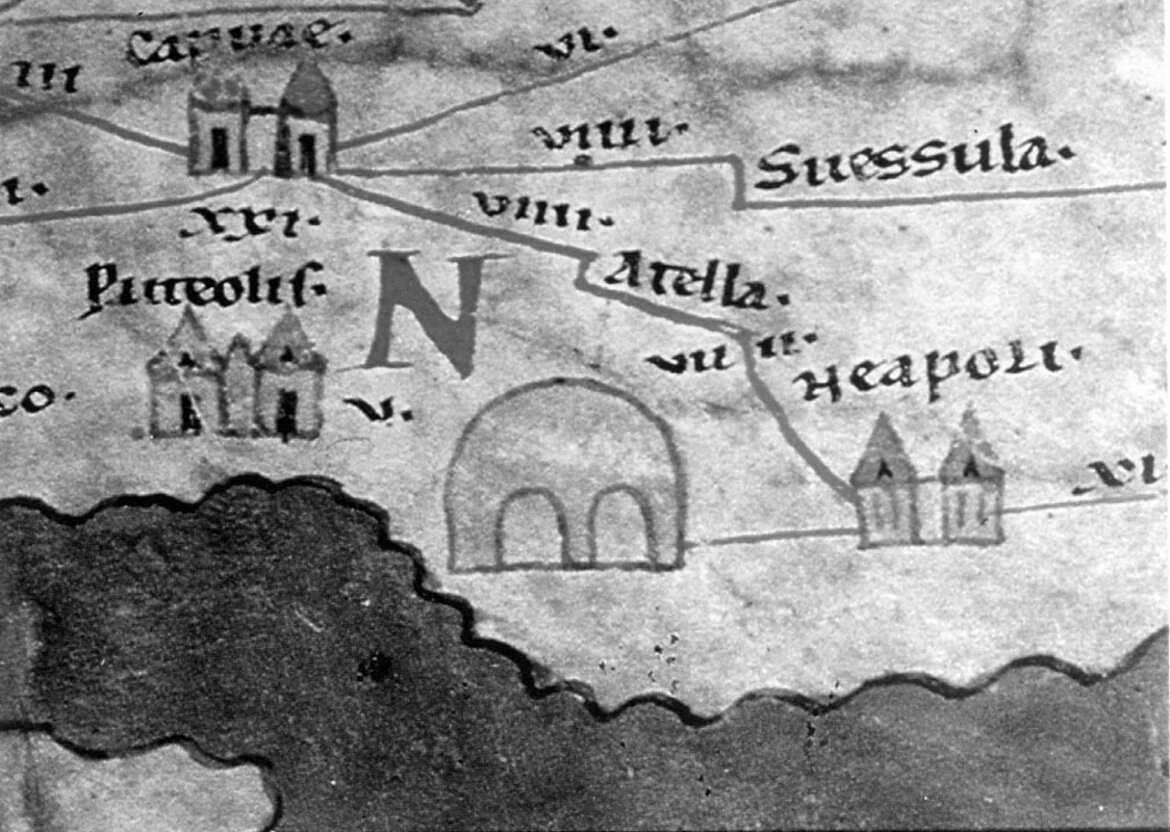 Capuae.
VI.
III
VIIII.
Suessula.
I.
VIIII.
XXI.
Puteolis.
N
Atella.
VII II.
Neapoli.
co.
V.
XI